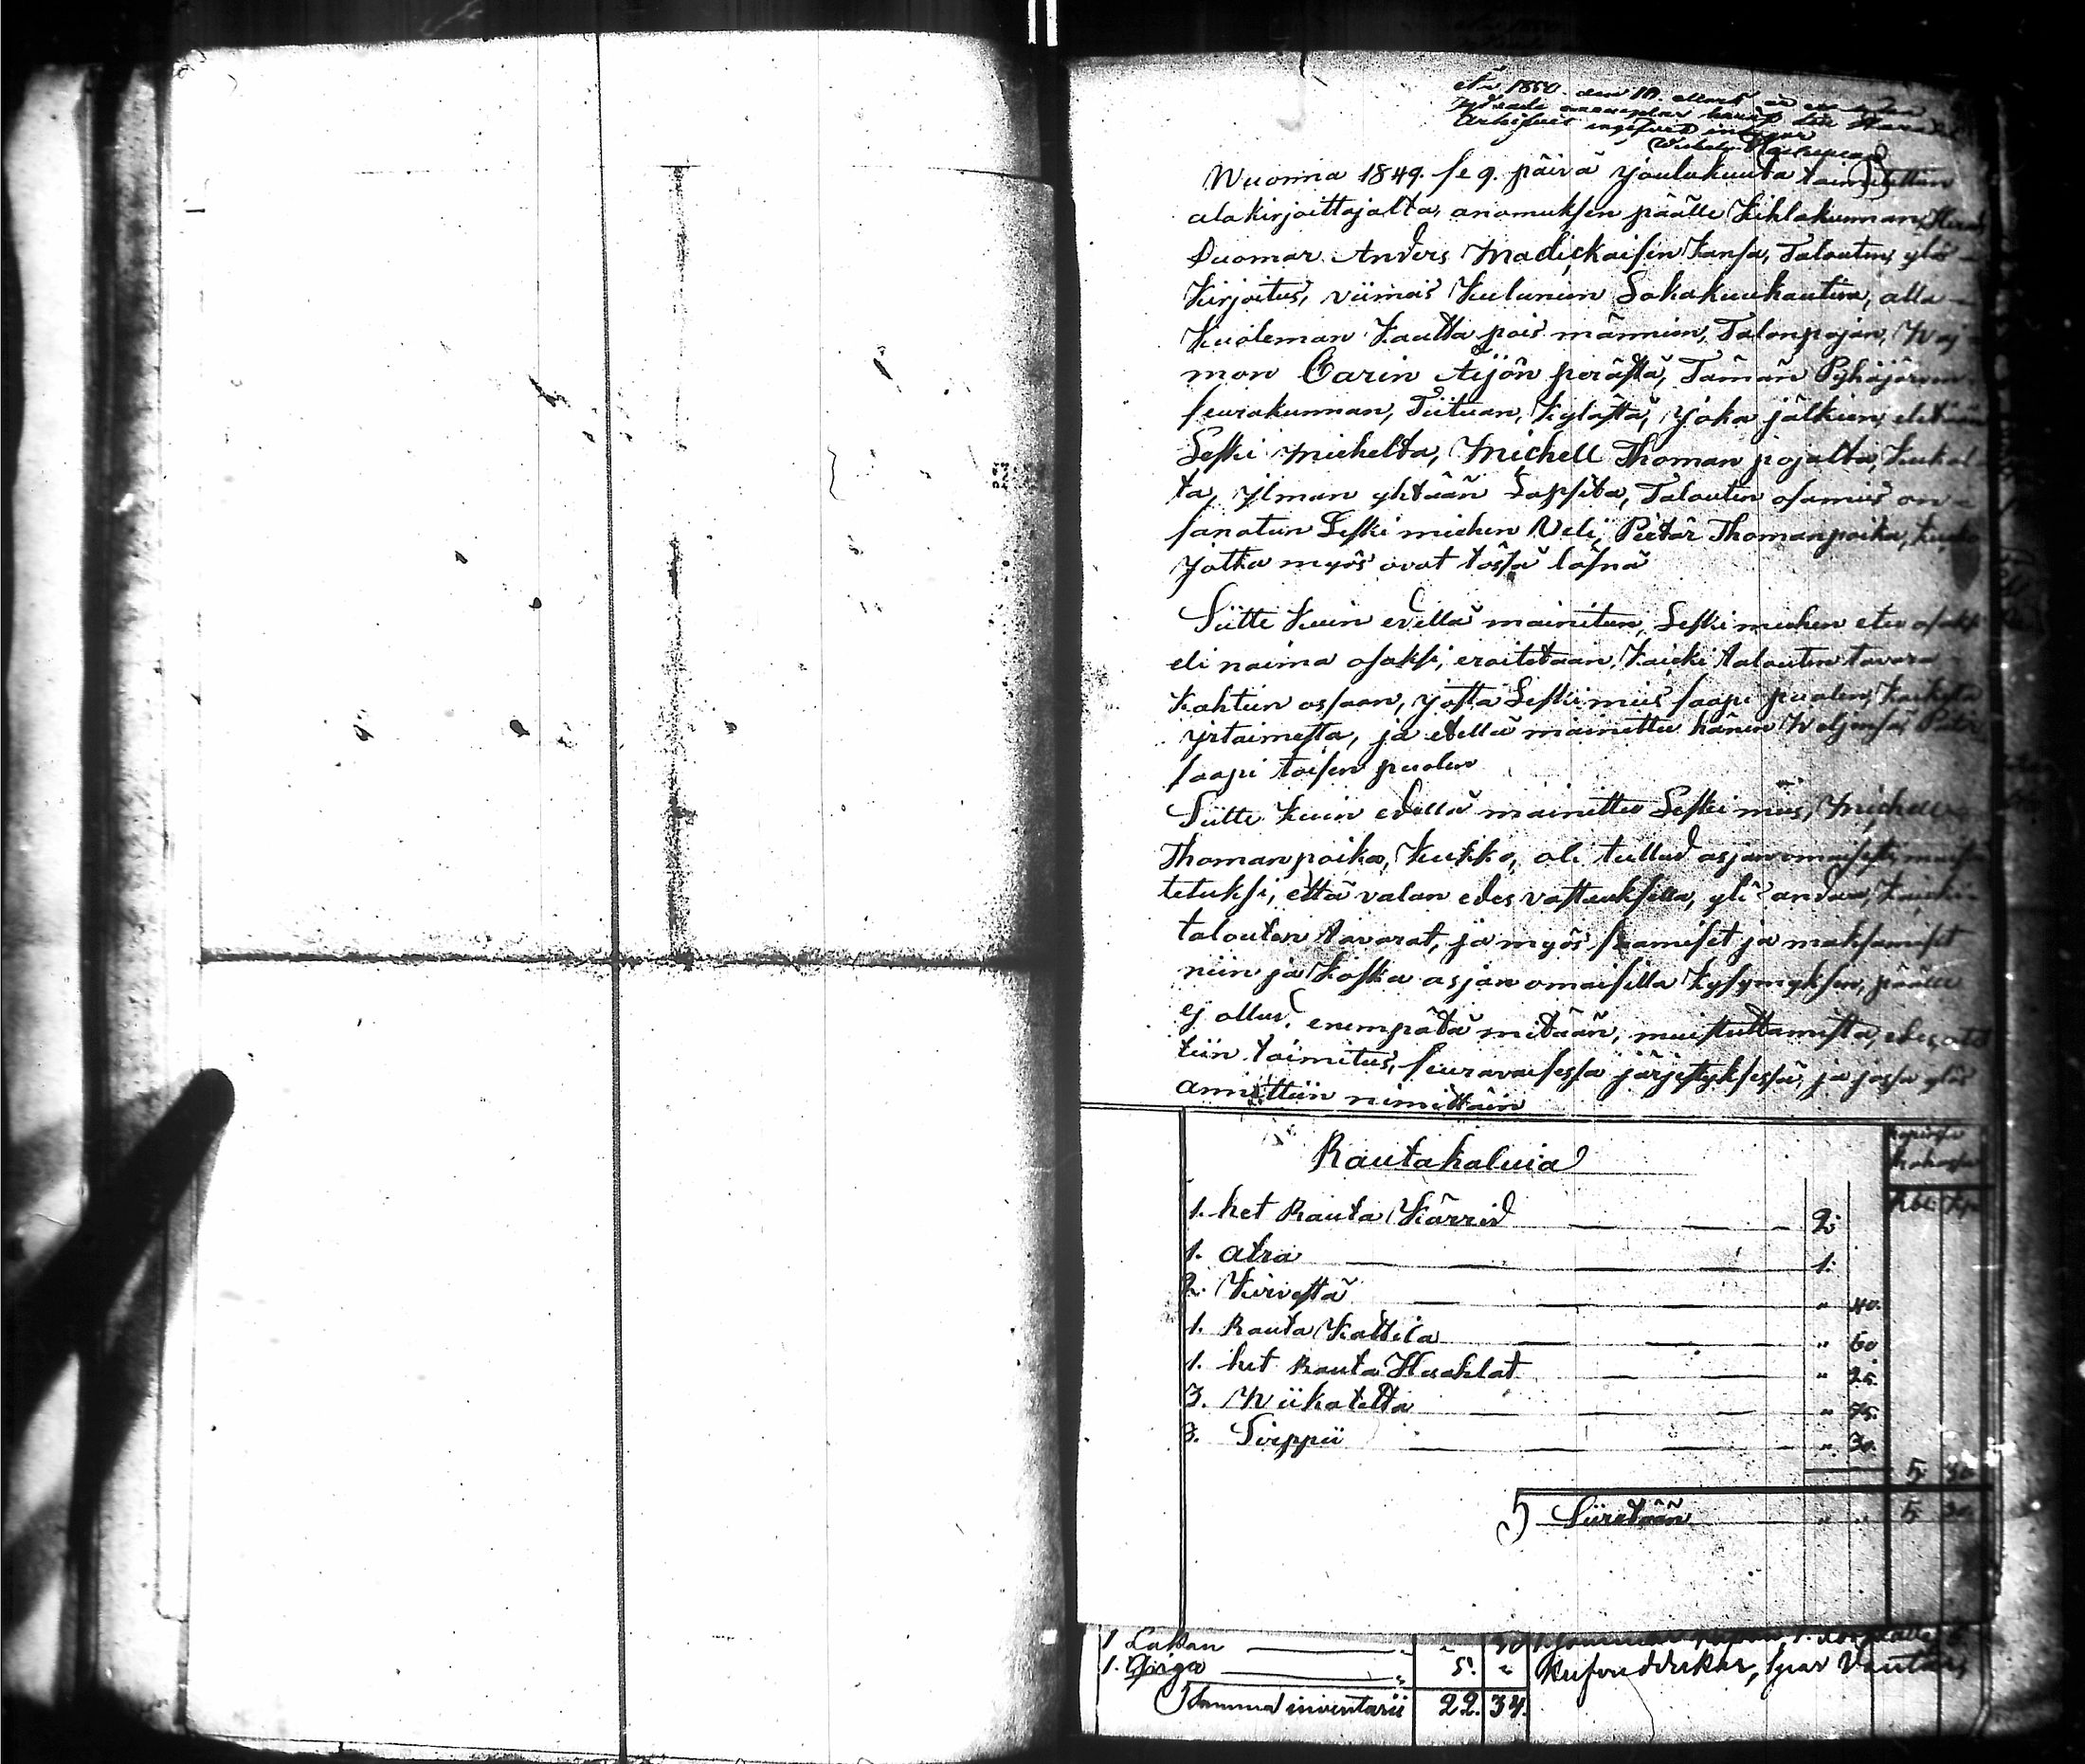 1850. den 10.
Wuonna 1849. se 9. päivä Joulukuuta toimitettun
ala kirjoittajalta, anomuksen päälle Kihlakunnan,
Duomar Anders Madickaisen kansa, Talouten ylös-
Kirjoitus, viimeis kulunen Lokakuukautena, alla-
Kuoleman kautta pois männien, Talonpojan, Waj-
mon Carin Äijön perästä, Tämän Pyhäjärven
seurakunnan, Tiituan, kylästä, Joka jälkien eletään
Leski miehelta, Michell Thoman pojalta, Kukol-
ta, Jlman yhtään Lapsita, Talouten osamies on-
sanotun Leski miehen Veli, Pietär Thomanpoika, Kukko
Jotka myös ovat tössä läsnä
Siitte kuin evellä mainitun, Leski miehen etu osaksi
eli naima osaksi, eroitetaan, kaicki talouten tavara
kahtien ossaan, Josta Leski mies saapi puolen, kaikesta
yrtaimesta, ja edellä mainittu hänen Weljensä Pietär
saapi toisen puolen
Siitte kuin edellä mainittu Leski mies, Michell
Thomanpoika, Kukko, oli tullud asjanomaisesti
tetuksi, että valan edesvastauksella, yli andaa, kaicki
talouten tavarat, ja myös saamiset ja maksamiset
niin ja koska asjan omaisilla kysymyksen, päälle
ej ollud enempätä mitään, muistuttamista,
tiin toimitus, seuravaisessa järjestyksessä, ja jossa ylös
annittiin nimittäin
Rautakaluia
Rbl. Kp.
1. het Rauta Kärrid 2.
1. atra 1.
2. Kirvestä " 40.
1. Rauta Kattila " 60
1. het Rauta Huahlat " 25.
3. Wiikatetta " 75.
3. Sirppii " 30.
5. 30
Siiretään " " 5 30
1 Lakan " 30
1. Giga 5. "
Summa inventarii 22. 34.